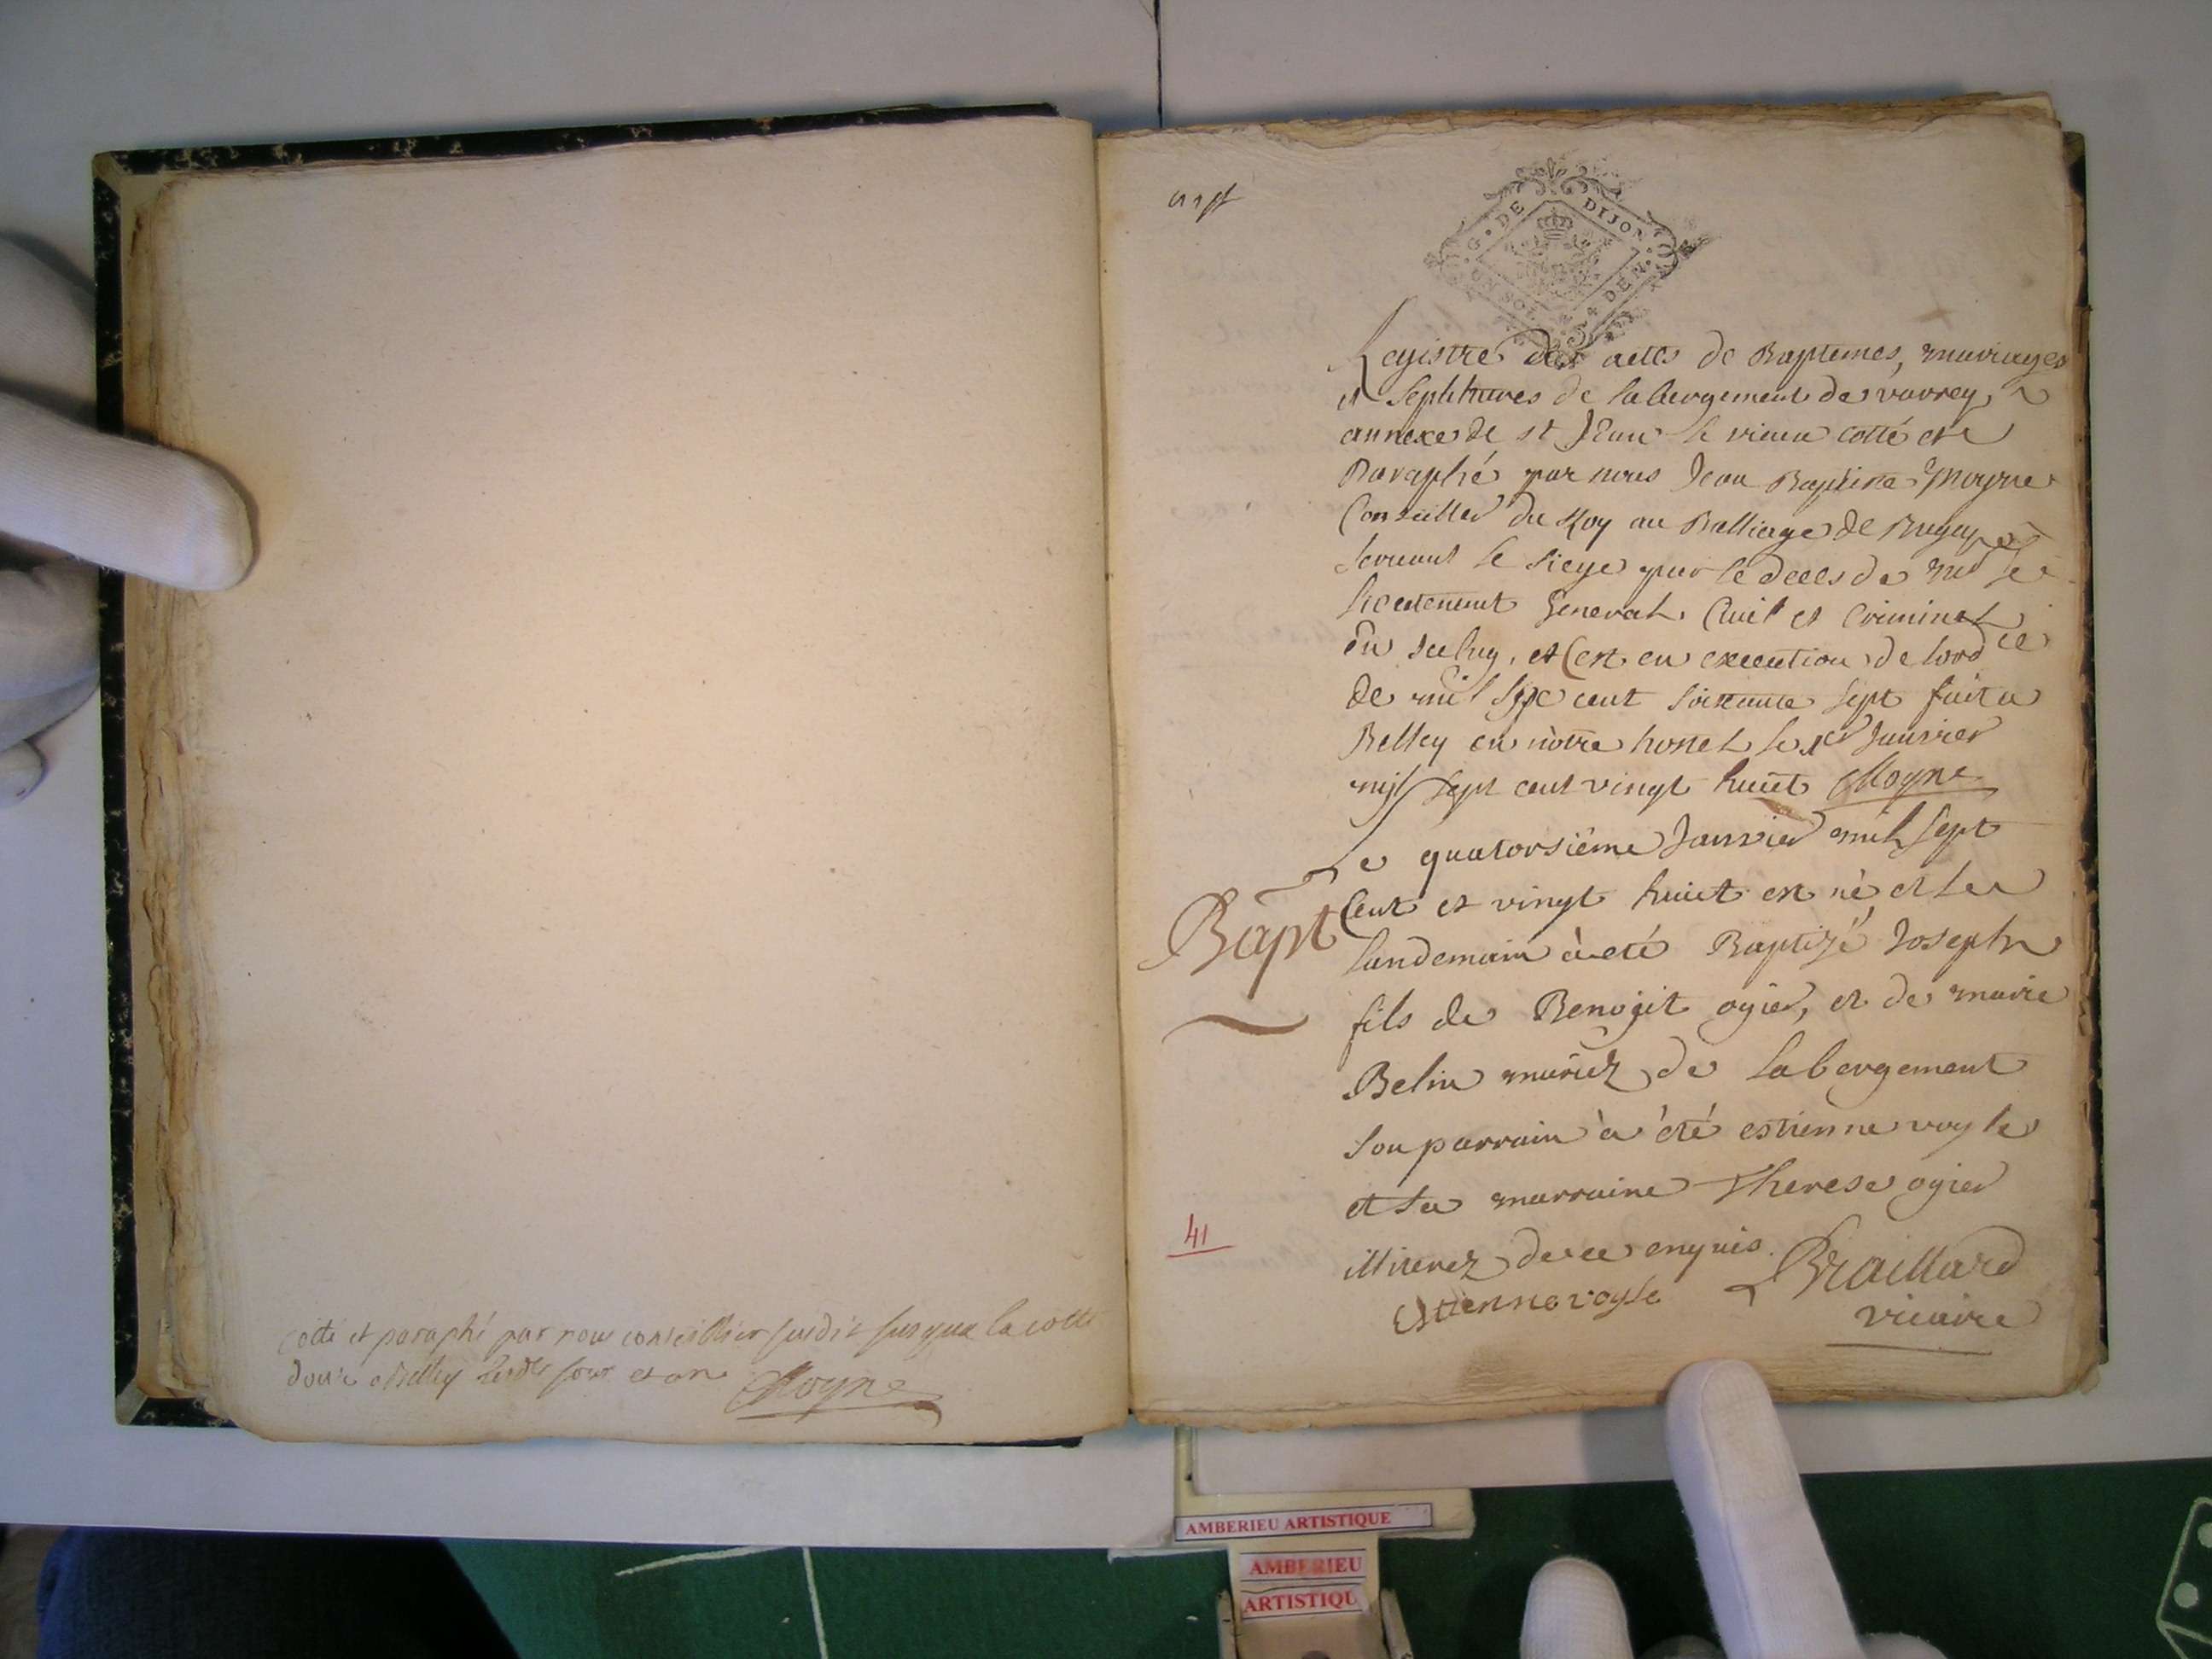 cotté et paraphé par nous conseillier susdit jusques la cotte
douze a Belley lesdts jour et an Moyne
G. DE DIJON
UN SOL 4 DEN.
Registre des actes de Baptemes, mariages
et Sepultures de labergement de varrey
annexe de st Jean le vieux cotté et
Paraphé par nous Jean Baptiste Moyne
Conseiller du Roy au Balliage de Bugey
servant le siege par le decès de Mr le
lieutenent General Civil et Criminel
en iceluy, et c'est en execution de lordce
de mil six cent soixante sept fait a
Belley en nôtre hostel le 1er Janvier
mil sept cent vingt huict Moyne
Bapt
Le quatorsième Janvier mil sept
Cent et vingt huict est né et le
landemain à eté Baptizé Joseph
fils de Benoit ogier, et de marie
Belin mariez de Labergement
son parrain à été estienne voyle
et sa marraine Therese ogier
illiterez de ce enquis. Braillard
Estienne voyle
vicaire
41
AMBERIEU ARTISTIQUE
AMBERIEU
ARTISTIQU